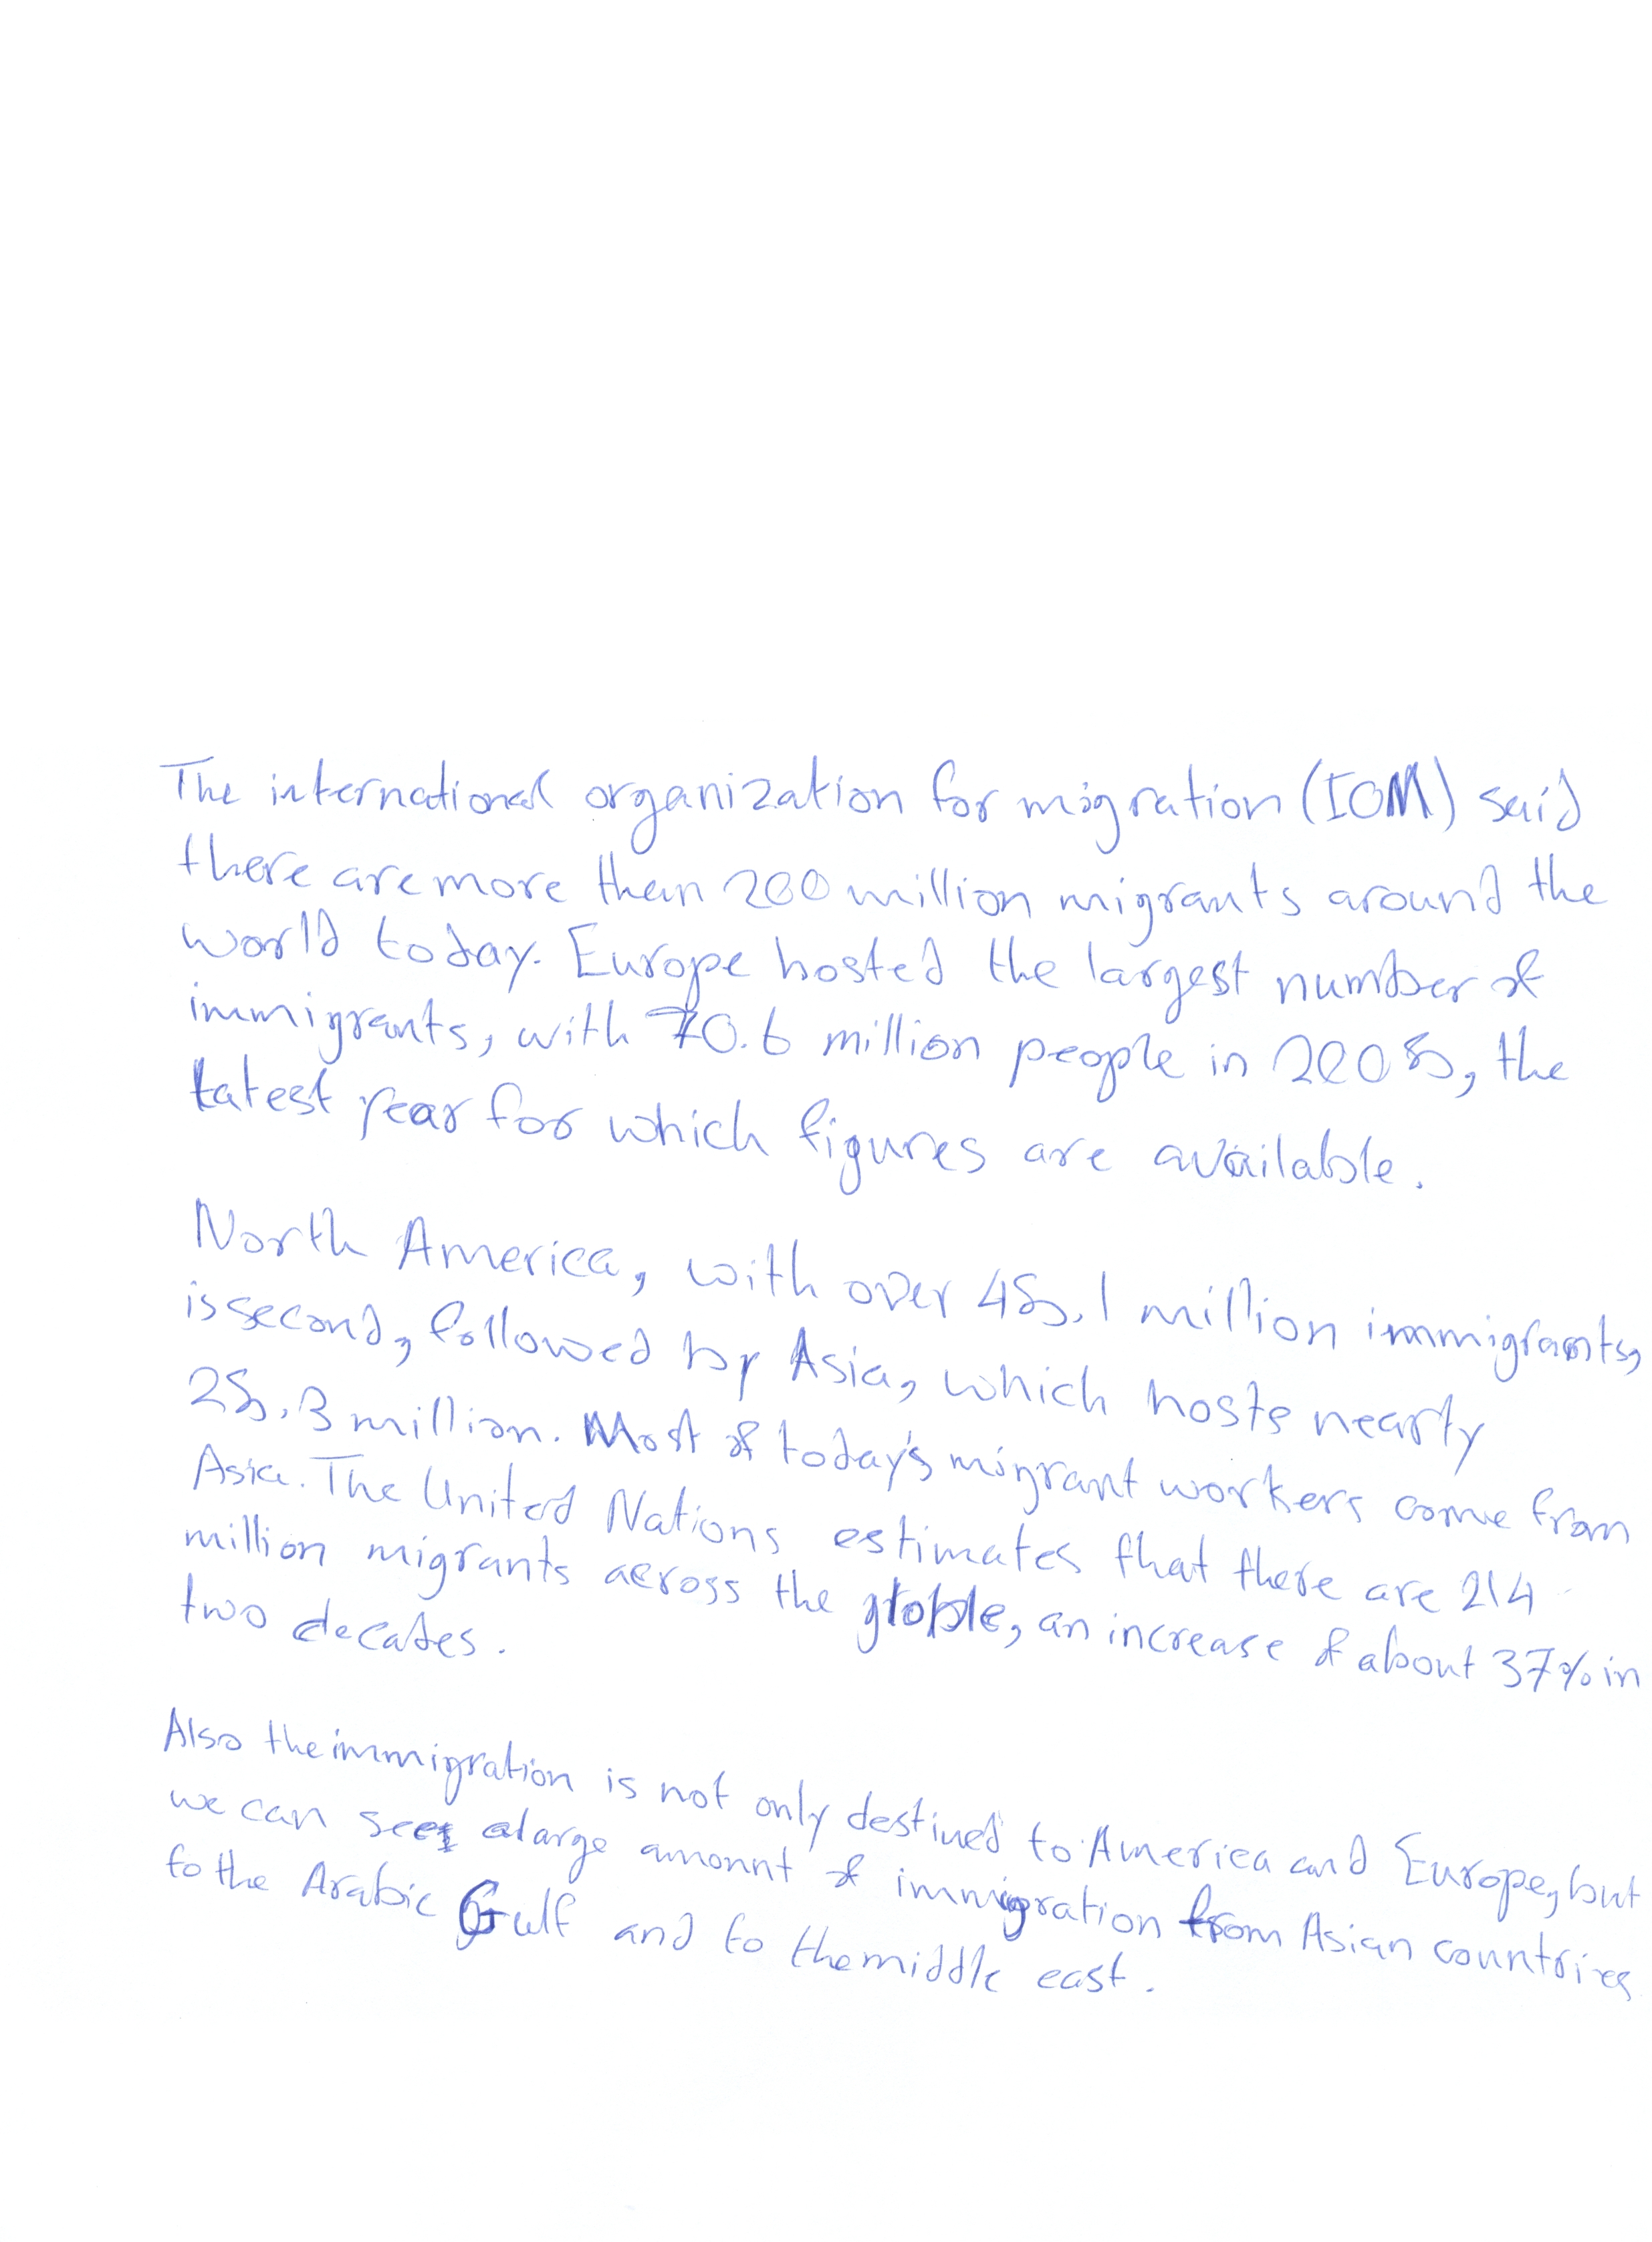 The international organization for migration (IOM) said
there are more than 200 million migrants around the
world today. Europe hosted the largest number of
immigrants, with 70.6 million people in 2005, the
latest year for which figures are available.
North America, with over 45.1 million immigrants,
is second, followed by Asia, which hosts nearly
25.3 million. Most of today's migrant workers come from
Asia. The United Nations estimates that there are 214
million migrants across the globle, an increase of about 37% in
two decades.
Also the immigration is not only destined to America and Europe, but
we can see a large amount of immigration from Asian countries
to the Arabic Gulf and to the middle east.